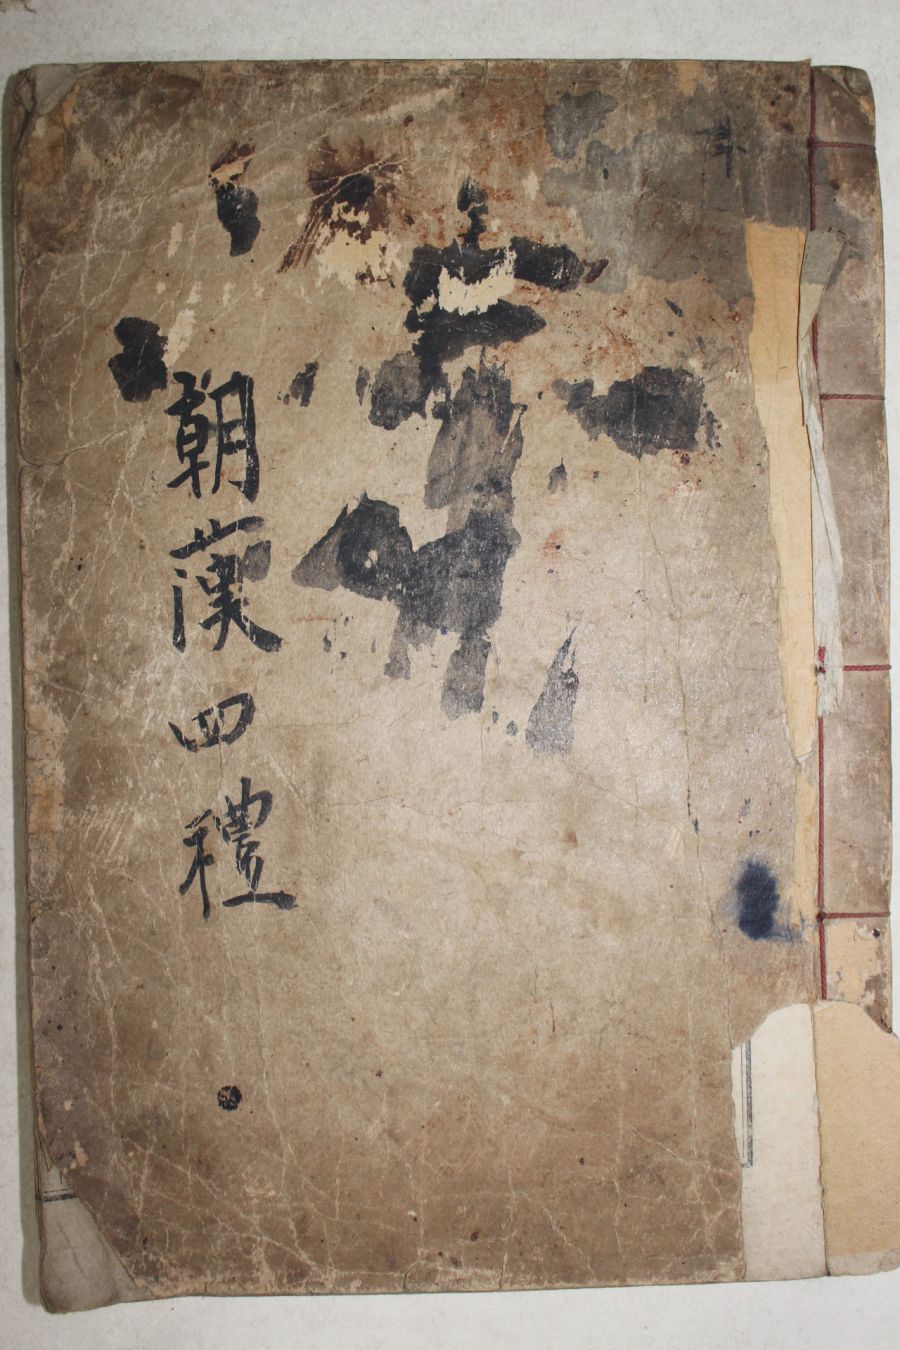 朝漢四禮